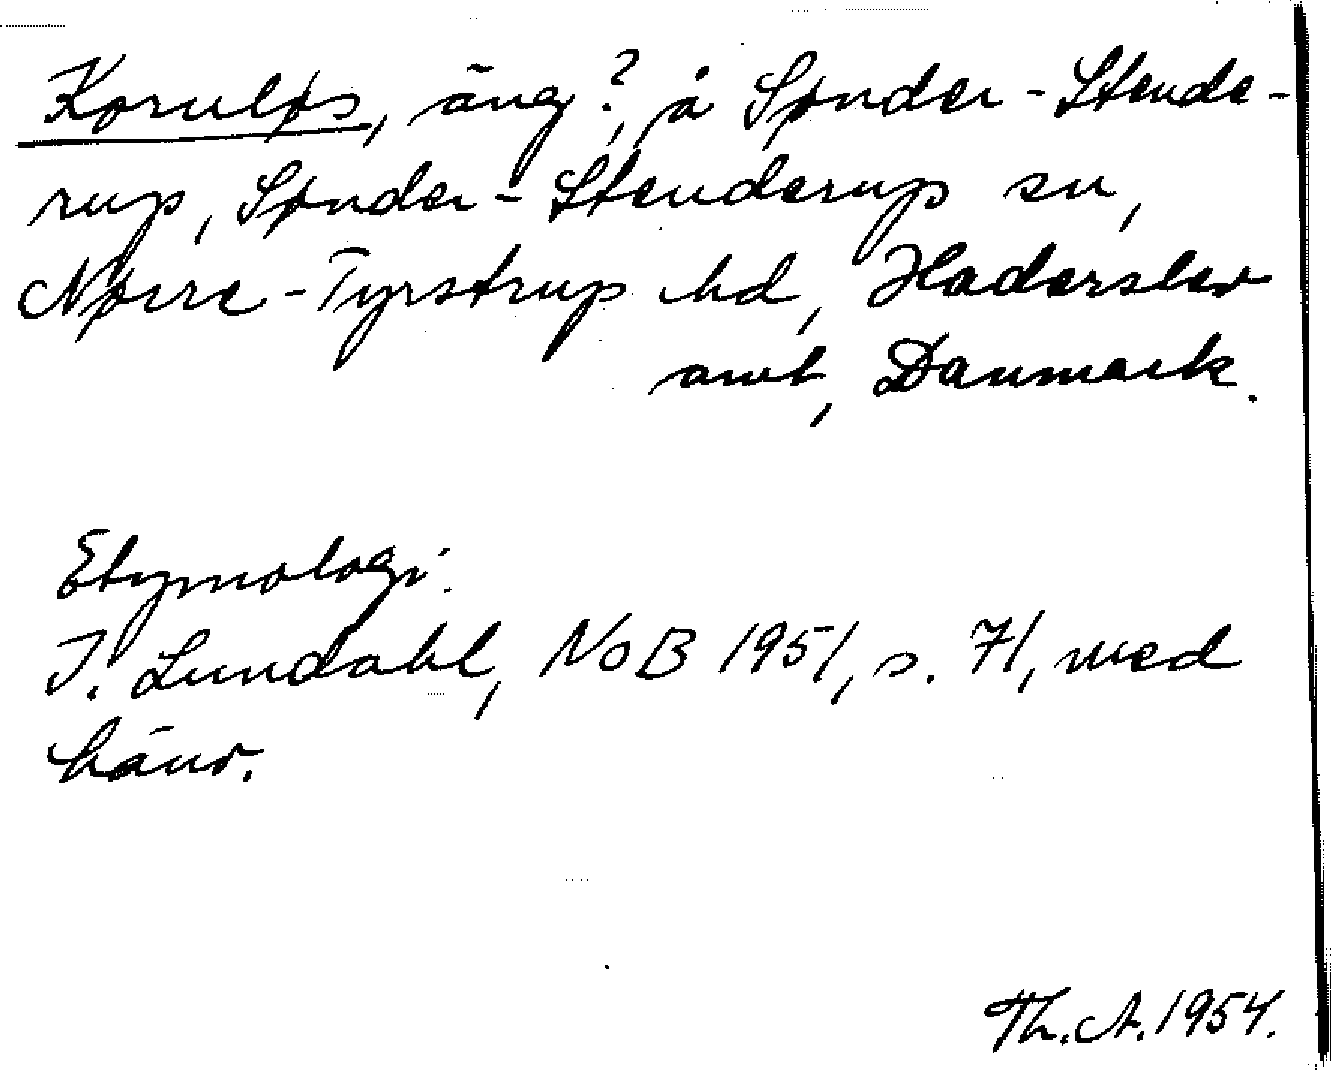 Kornløs, äng?, å Sønder-Stende-
rup, Sønder-Stenderup sn,
Nørre-Tyrstrup hd, Haderslev
amt, Danmark.
Etymologi.
I. Lundahl, NoB 1951, s. 71, med
hänv.
Th. A. 1954.